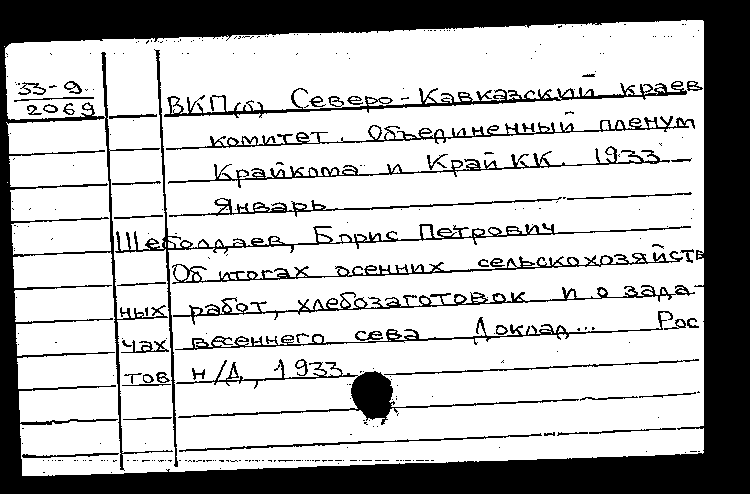 33-9
2069
ВКП(б) Северо-Кавказский краев
комитет. Объединенный пленум
Крайкома и Край КК. 1933
Январь.
Шеболдаев, Борис Петрович
Об итогах осенних сельскохозяйств
ных работ, хлебозаготовок и о зада-
чах весеннего сева. Доклад... Рос
тов н/Д, 1933.